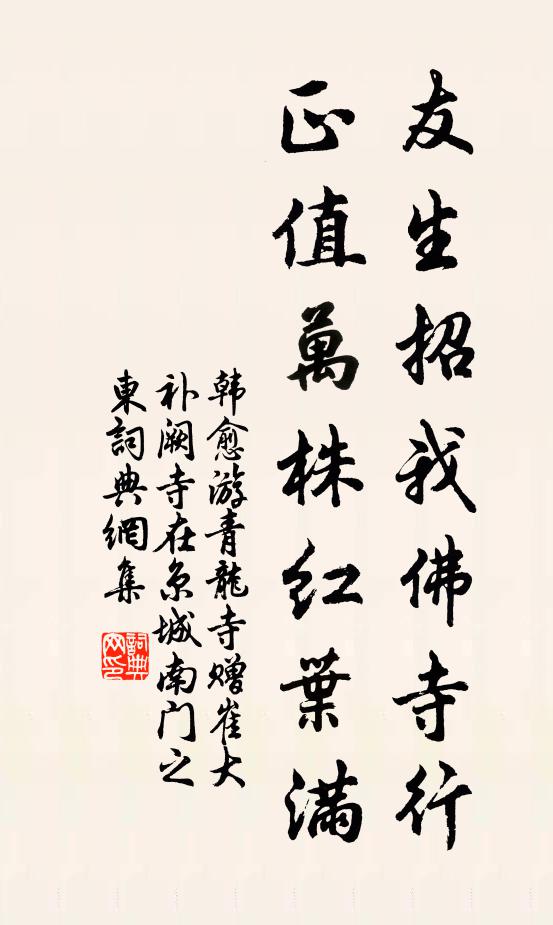 友生招我佛寺行
正值萬株红葉满
韩愈游青龍寺赠崔大
补阙寺在京城南门之
東詞典網集
詞典
网印